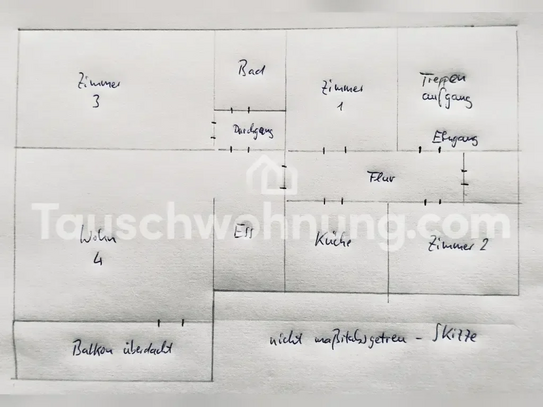 Zimmer
3
Bad
Durchgang
Zimmer
1
Treppen
aufgang
Eingang
Flur
Tauschwohnung.com
Wohn
4
Ess
Küche
Zimmer 2
Balkon überdacht
nicht maßstabsgetreu - Skizze